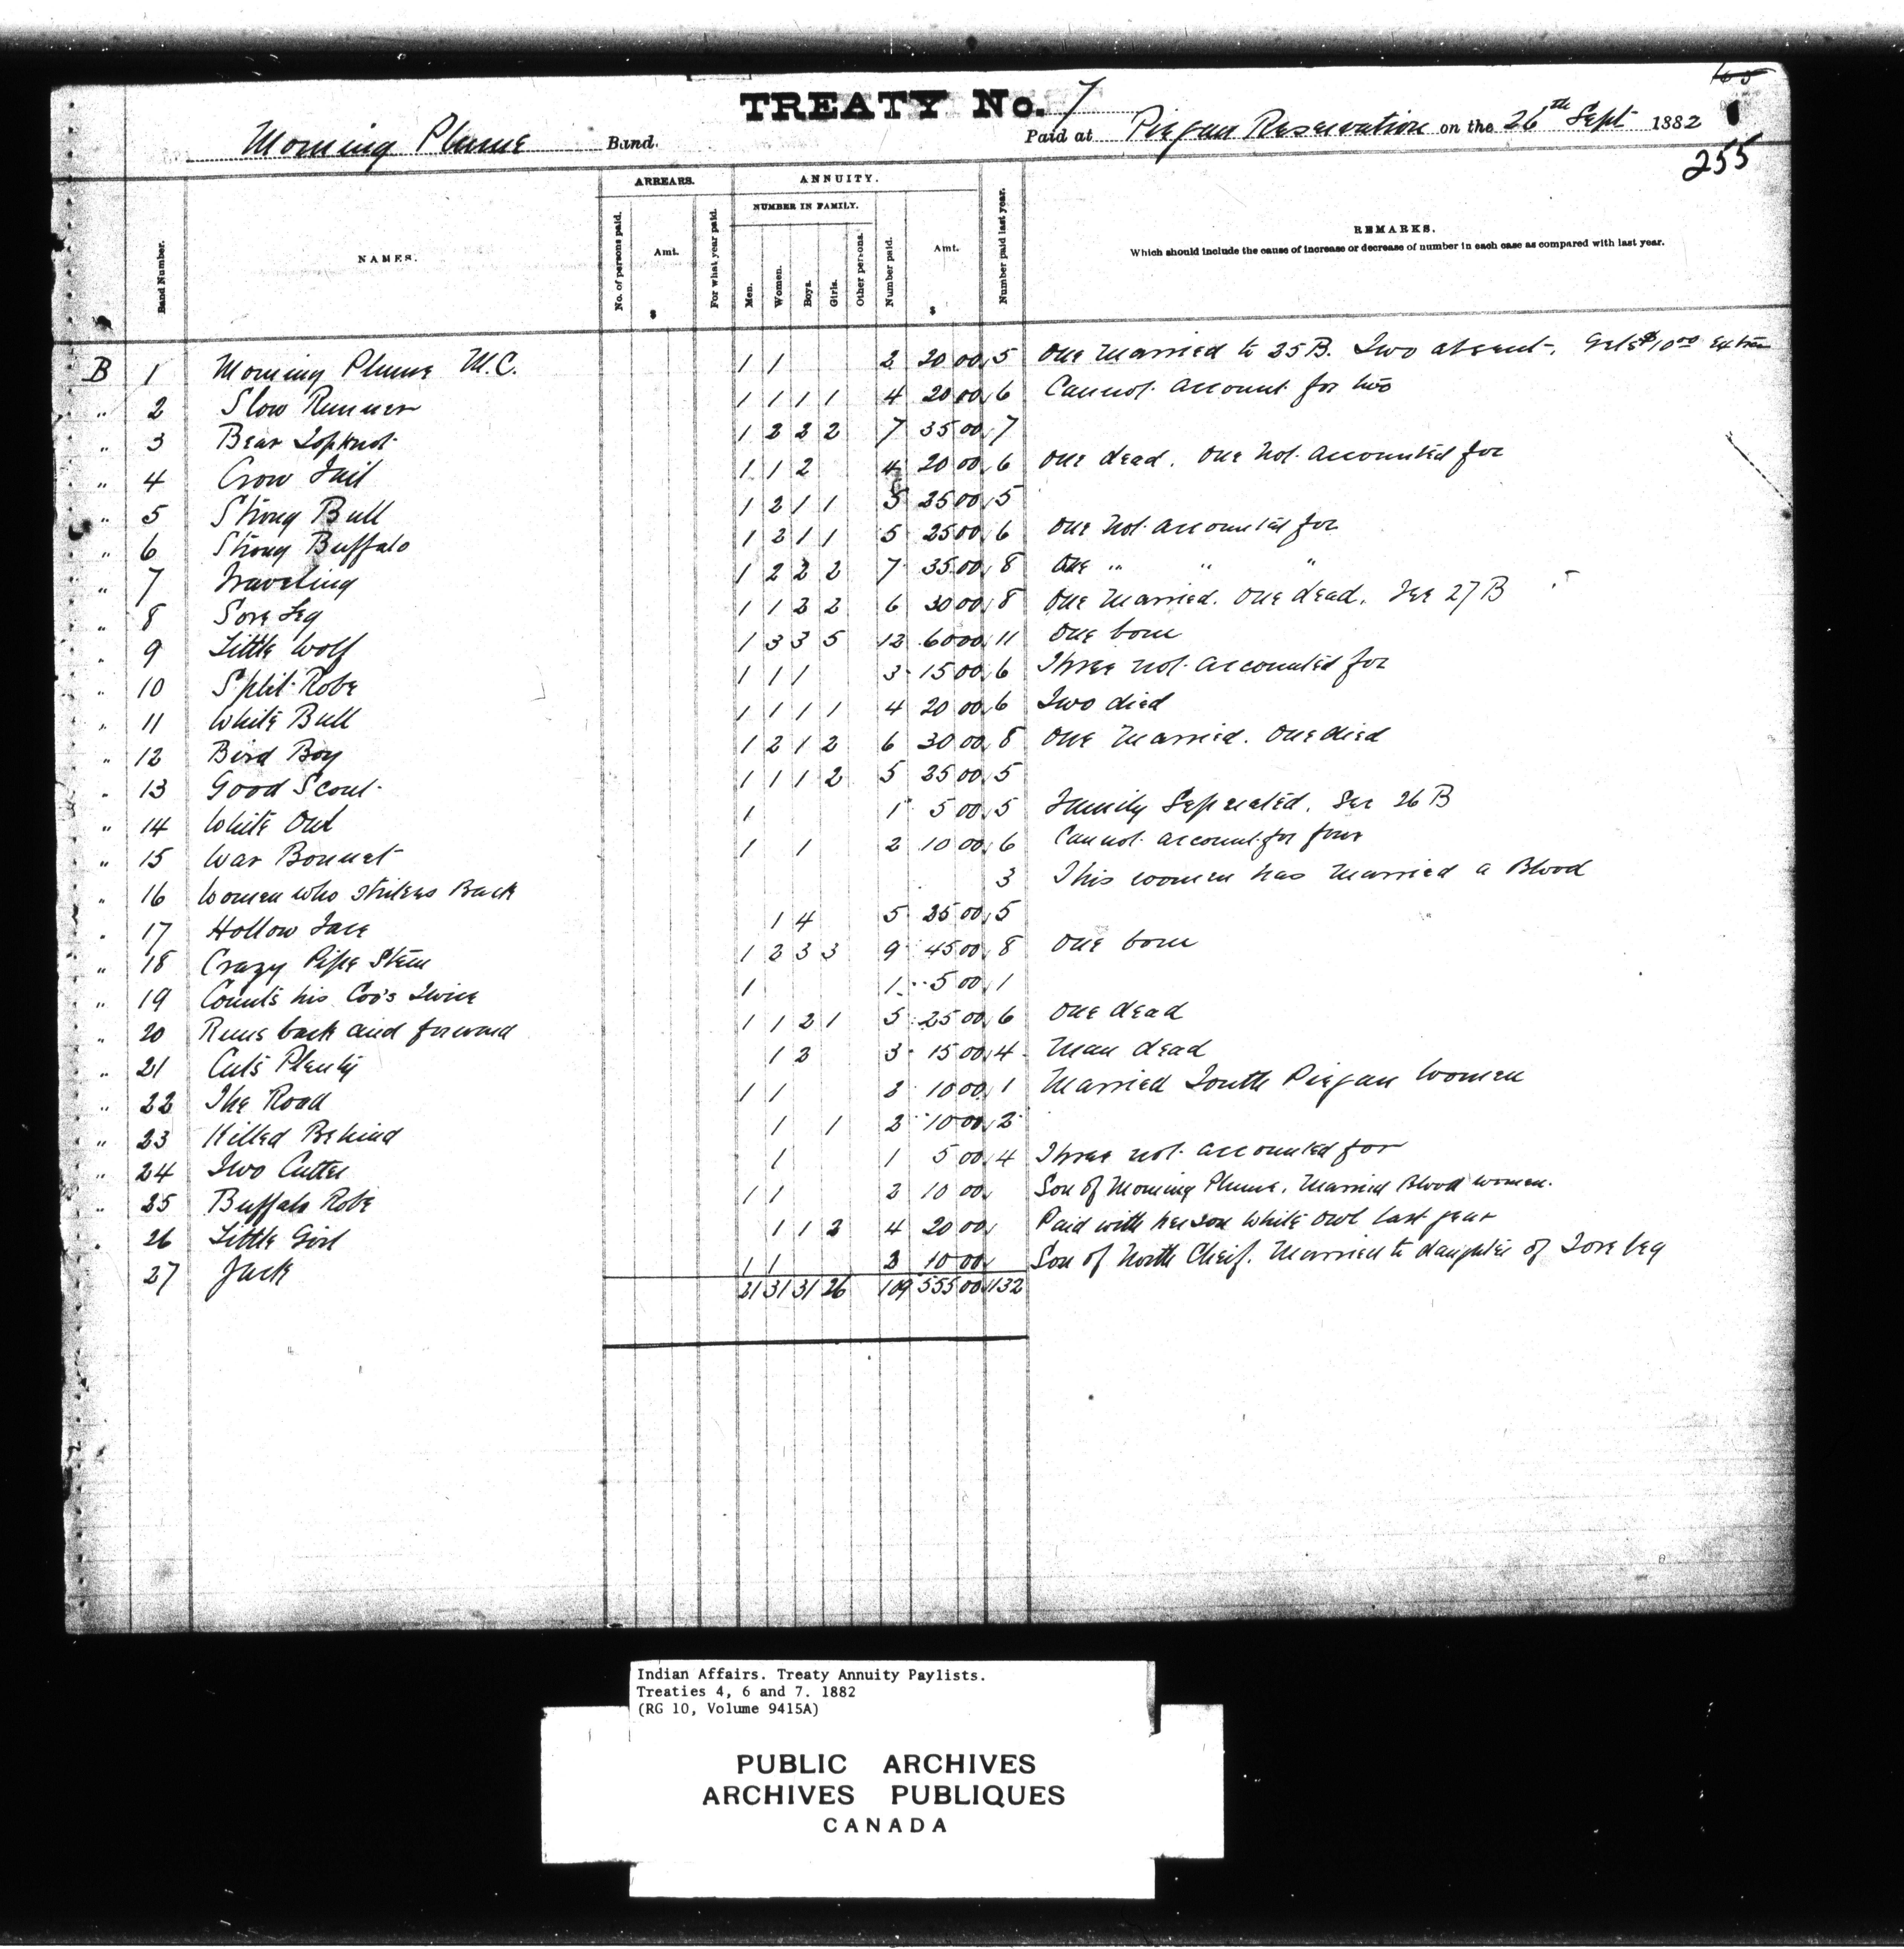 TREATY No. 7
Morning Plume Band.
Paid at Piegan Reservation on the 26th Sept 1882
255
Band Number.
NAMES.
ARREARS.
No. of persons paid.
Amt.
$
For what year paid.
ANNUITY.
NUMBER IN FAMILY.
Men.
Women.
Boys.
Girls.
Other persons.
Number paid.
Amt.
$
Number paid last year.
REMARKS.
Which should include the cause of increase or decrease of number in each case as compared with last year.
B 1 Morning Plume M.C. 1 1 2 20 00 5 One Married to 25 B. Two absent. Gets $10.00 Extra
" 2 Slow Runner 1 1 1 1 4 20 00 6 Cannot account for two
" 3 Bear Topknot 1 2 2 2 7 35 00 7
" 4 Crow Tail 1 1 2 4 20 00 6 One dead. One not accounted for
" 5 Strong Bull 1 2 1 1 5 25 00 5
" 6 Strong Buffalo 1 2 1 1 5 25 00 6 One not accounted for
" 7 Traveling 1 2 2 2 7 35 00 8 One " " "
" 8 Sore Leg 1 1 2 2 6 30 00 8 One Married. One dead. See 27 B
" 9 Little Wolf 1 3 3 5 12 60 00 11 One born
" 10 Split Robe 1 1 1 3 15 00 6 Three not accounted for
" 11 White Bull 1 1 1 1 4 20 00 6 Two died
" 12 Bird Boy 1 2 1 2 6 30 00 8 One Married. One died
" 13 Good Scout 1 1 1 2 5 25 00 5
" 14 White Owl 1 1 5 00 5 Family Seperated. See 26 B
" 15 War Bonnet 1 1 2 10 00 6 Cannot account for four
" 16 Women who strikes Back 3 This women has Married a Blood
" 17 Hollow Face 1 4 5 25 00 5
" 18 Crazy Pipe Stem 1 2 3 3 9 45 00 8 One born
" 19 Counts his Coo's Twice 1 1 5 00 1
" 20 Runs back and forward 1 1 2 1 5 25 00 6 One dead
" 21 Cuts Plenty 1 2 3 15 00 4 Man dead
" 22 The Road 1 1 2 10 00 1 Married South Piegan Women
" 23 Killed Behind 1 1 2 10 00 2
" 24 Two Cutter 1 1 5 00 4 Three not accounted for
" 25 Buffalo Robe 1 1 2 10 00 Son of Morning Plume. Married Blood women.
" 26 Little Girl 1 1 2 4 20 00 Paid with her son White Owl last year
27 Jack 1 1 2 10 00 Son of North Cheif. Married to daughter of Sore Leg
21 31 31 26 109 555 00 132
Indian Affairs. Treaty Annuity Paylists.
Treaties 4, 6 and 7. 1882
(RG 10, Volume 9415A)
PUBLIC ARCHIVES
ARCHIVES PUBLIQUES
CANADA